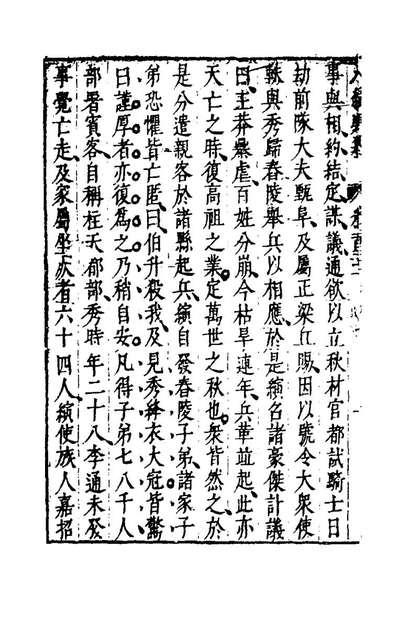 事與相約結定謀議通欲以立秋材官都試騎士日
劫前隊大夫甄阜及屬正梁丘賜因以號令大衆使
軼與秀歸舂陵舉兵以相應於是縯召諸豪傑計議
曰王莽暴虐百姓分崩今枯旱連年兵革並起此亦
天亡之時復高祖之業定萬世之秋也衆皆然之於
是分遣親客於諸縣起兵縯自發舂陵子弟諸家子
弟恐懼皆亡匿曰伯升殺我及見秀絳衣大冠皆驚
曰謹厚者亦復爲之乃稍自安凡得子弟七八千人
部署賓客自稱柱天都部秀時年二十八李通未發
事覺亡走及家屬坐死者六十四人縯使族人嘉招